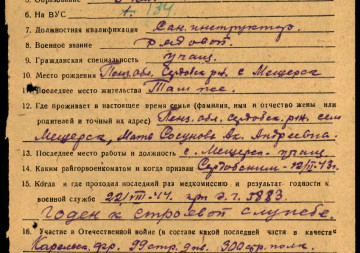 6. На ВУС № 134
7. Должностная квалификация Сан. инструктор.
8. Военное звание рядовой
9. Гражданская специальность учащ.
10. Место рождения Пенз. обл. Сердобск. р-н. с. Мещерск
11. Последнее место жительства Там же.
12. Где проживает в настоящее время семья (фамилия, имя и отчество жены или
родителей и точный их адрес) Пенз. обл. Сердобск. р-н. село
Мещерск, Мать Андреевна
13. Последнее место работы и должность с. Мещерск учащ.
14. Каким райгорвоенкоматом и когда призван Сердобским
15. Когда и где проходил последний раз медкомиссию и результат годности к
военной службе 22/VIII-44. при э.г. 5883
Годен к строевой службе.
16. Участие в Отечественной войне (в составе какой последней части в качестве
Карельск. фр. 99 стр. див. 300 стр. полк.